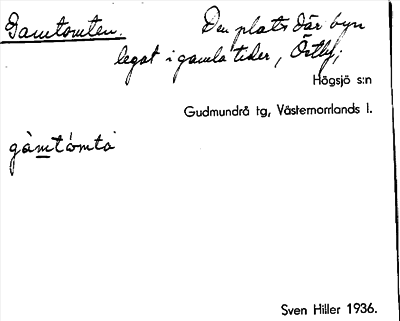 Gamtomten. Den plats där byn
legat i gamla tider, Östby,
Högsjö s:n
Gudmundrå tg, Västernorrlands l.
gàmtómta
Sven Hiller 1936.